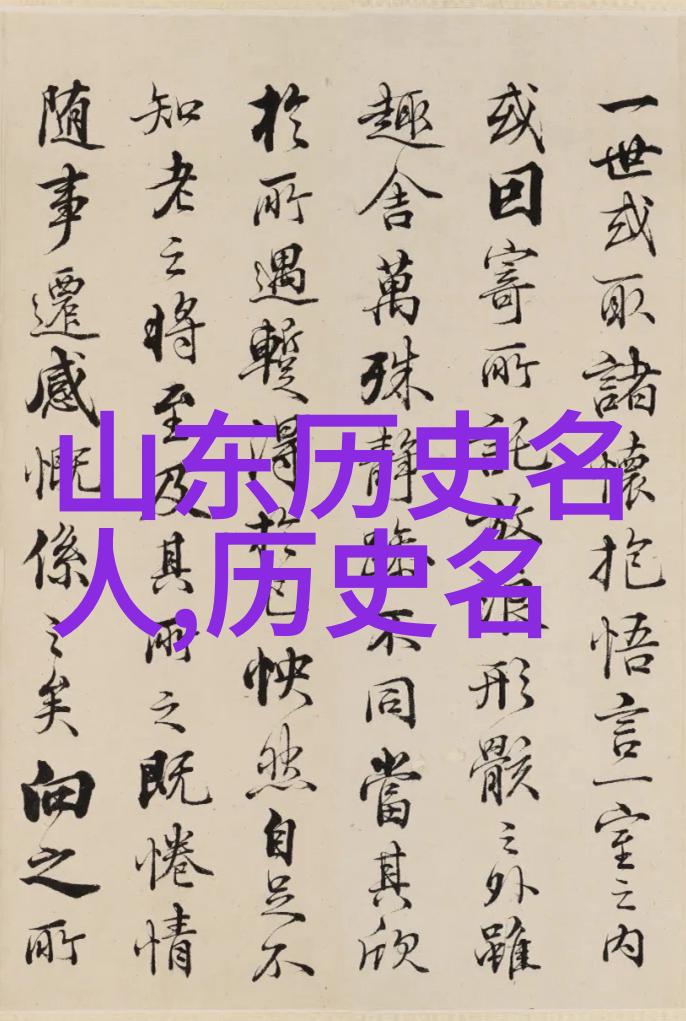 一世或取諸懷抱悟言一室之内
或因寄所託放浪形骸之外雖
趣舍萬殊静躁不同當其欣
於所遇蹔得於己怏然自足不
知老之將至及其所之既惓情
随事遷感慨係之矣向之所
山东历史名
人,历史名